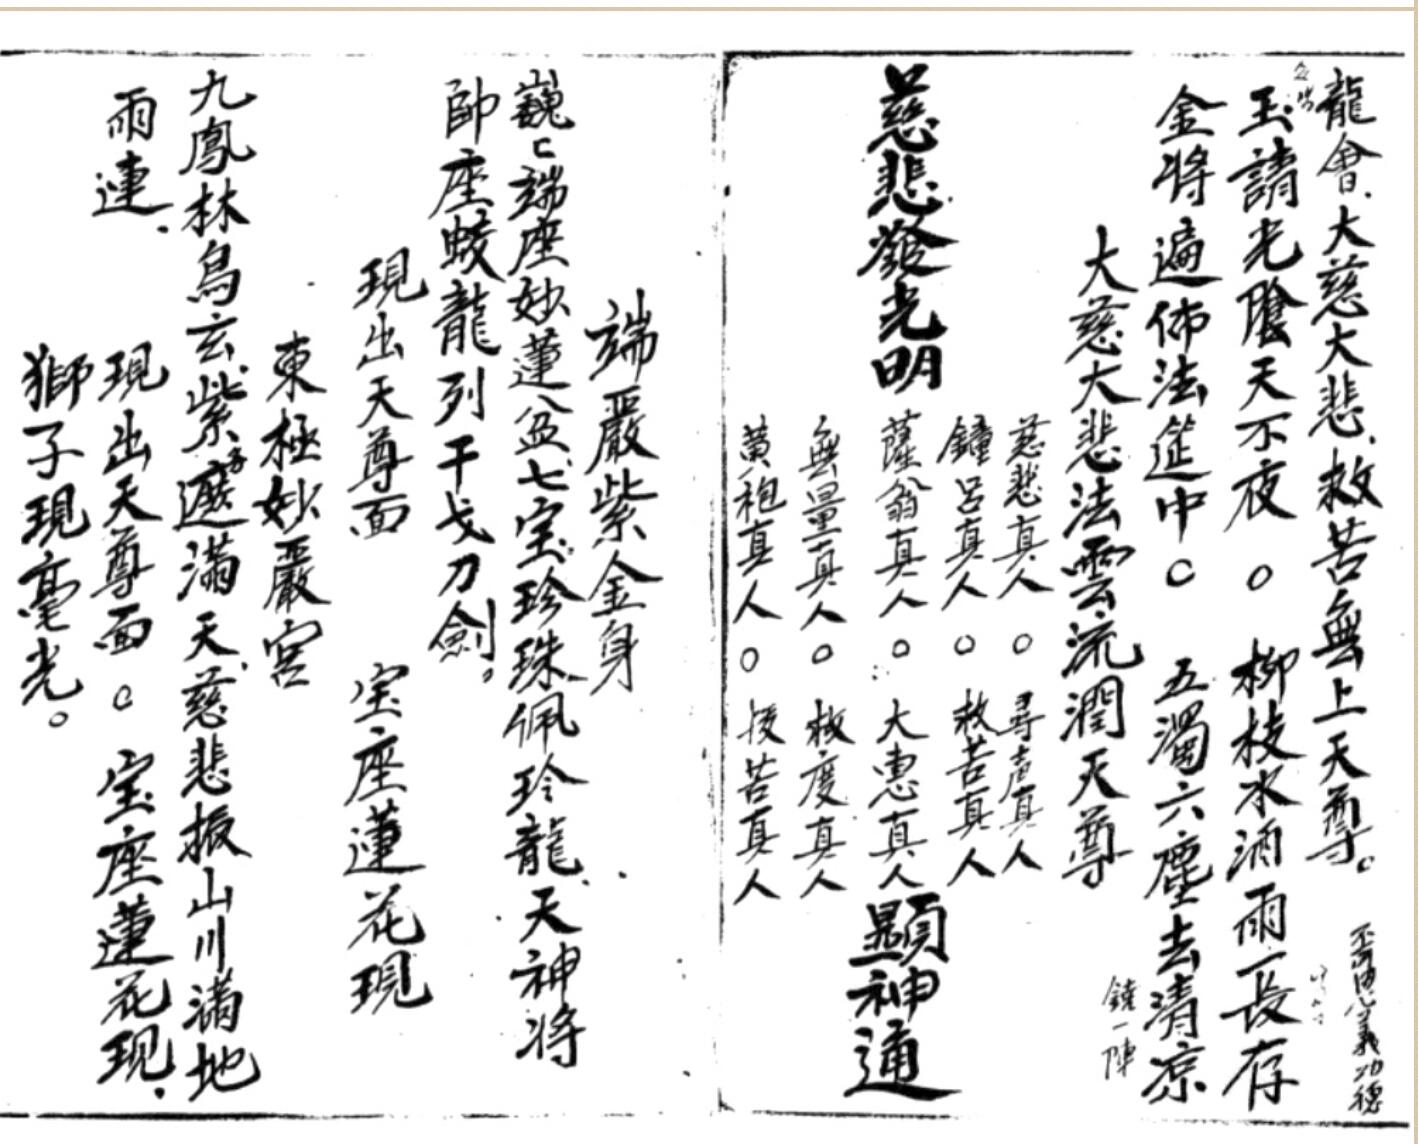 龍會大慈大悲救苦無上天尊。
不可思議功德
玉請光陰天不夜○柳枝水洒雨一長存
金將遍佈法筵中○五濁六塵去清凉
大慈大悲法雲流潤天尊
鐃一陣
慈悲真人○尋声真人
鐘呂真人○救苦真人
慈悲發光明
薩翁真人○大惠真人
顯神通
無量真人○救度真人
黄袍真人○援苦真人
端嚴紫金身
巍〻端座妙蓮盆七宝珍珠佩玲龍天神将
帥座蛟龍列干戈刀劍。
現出天尊面 宝座蓮花現
東極妙嚴宮
九鳳林鳥玄紫遲满天慈悲振山川满地
雨連
現出天尊面○宝座蓮花現
獅子現毫光。